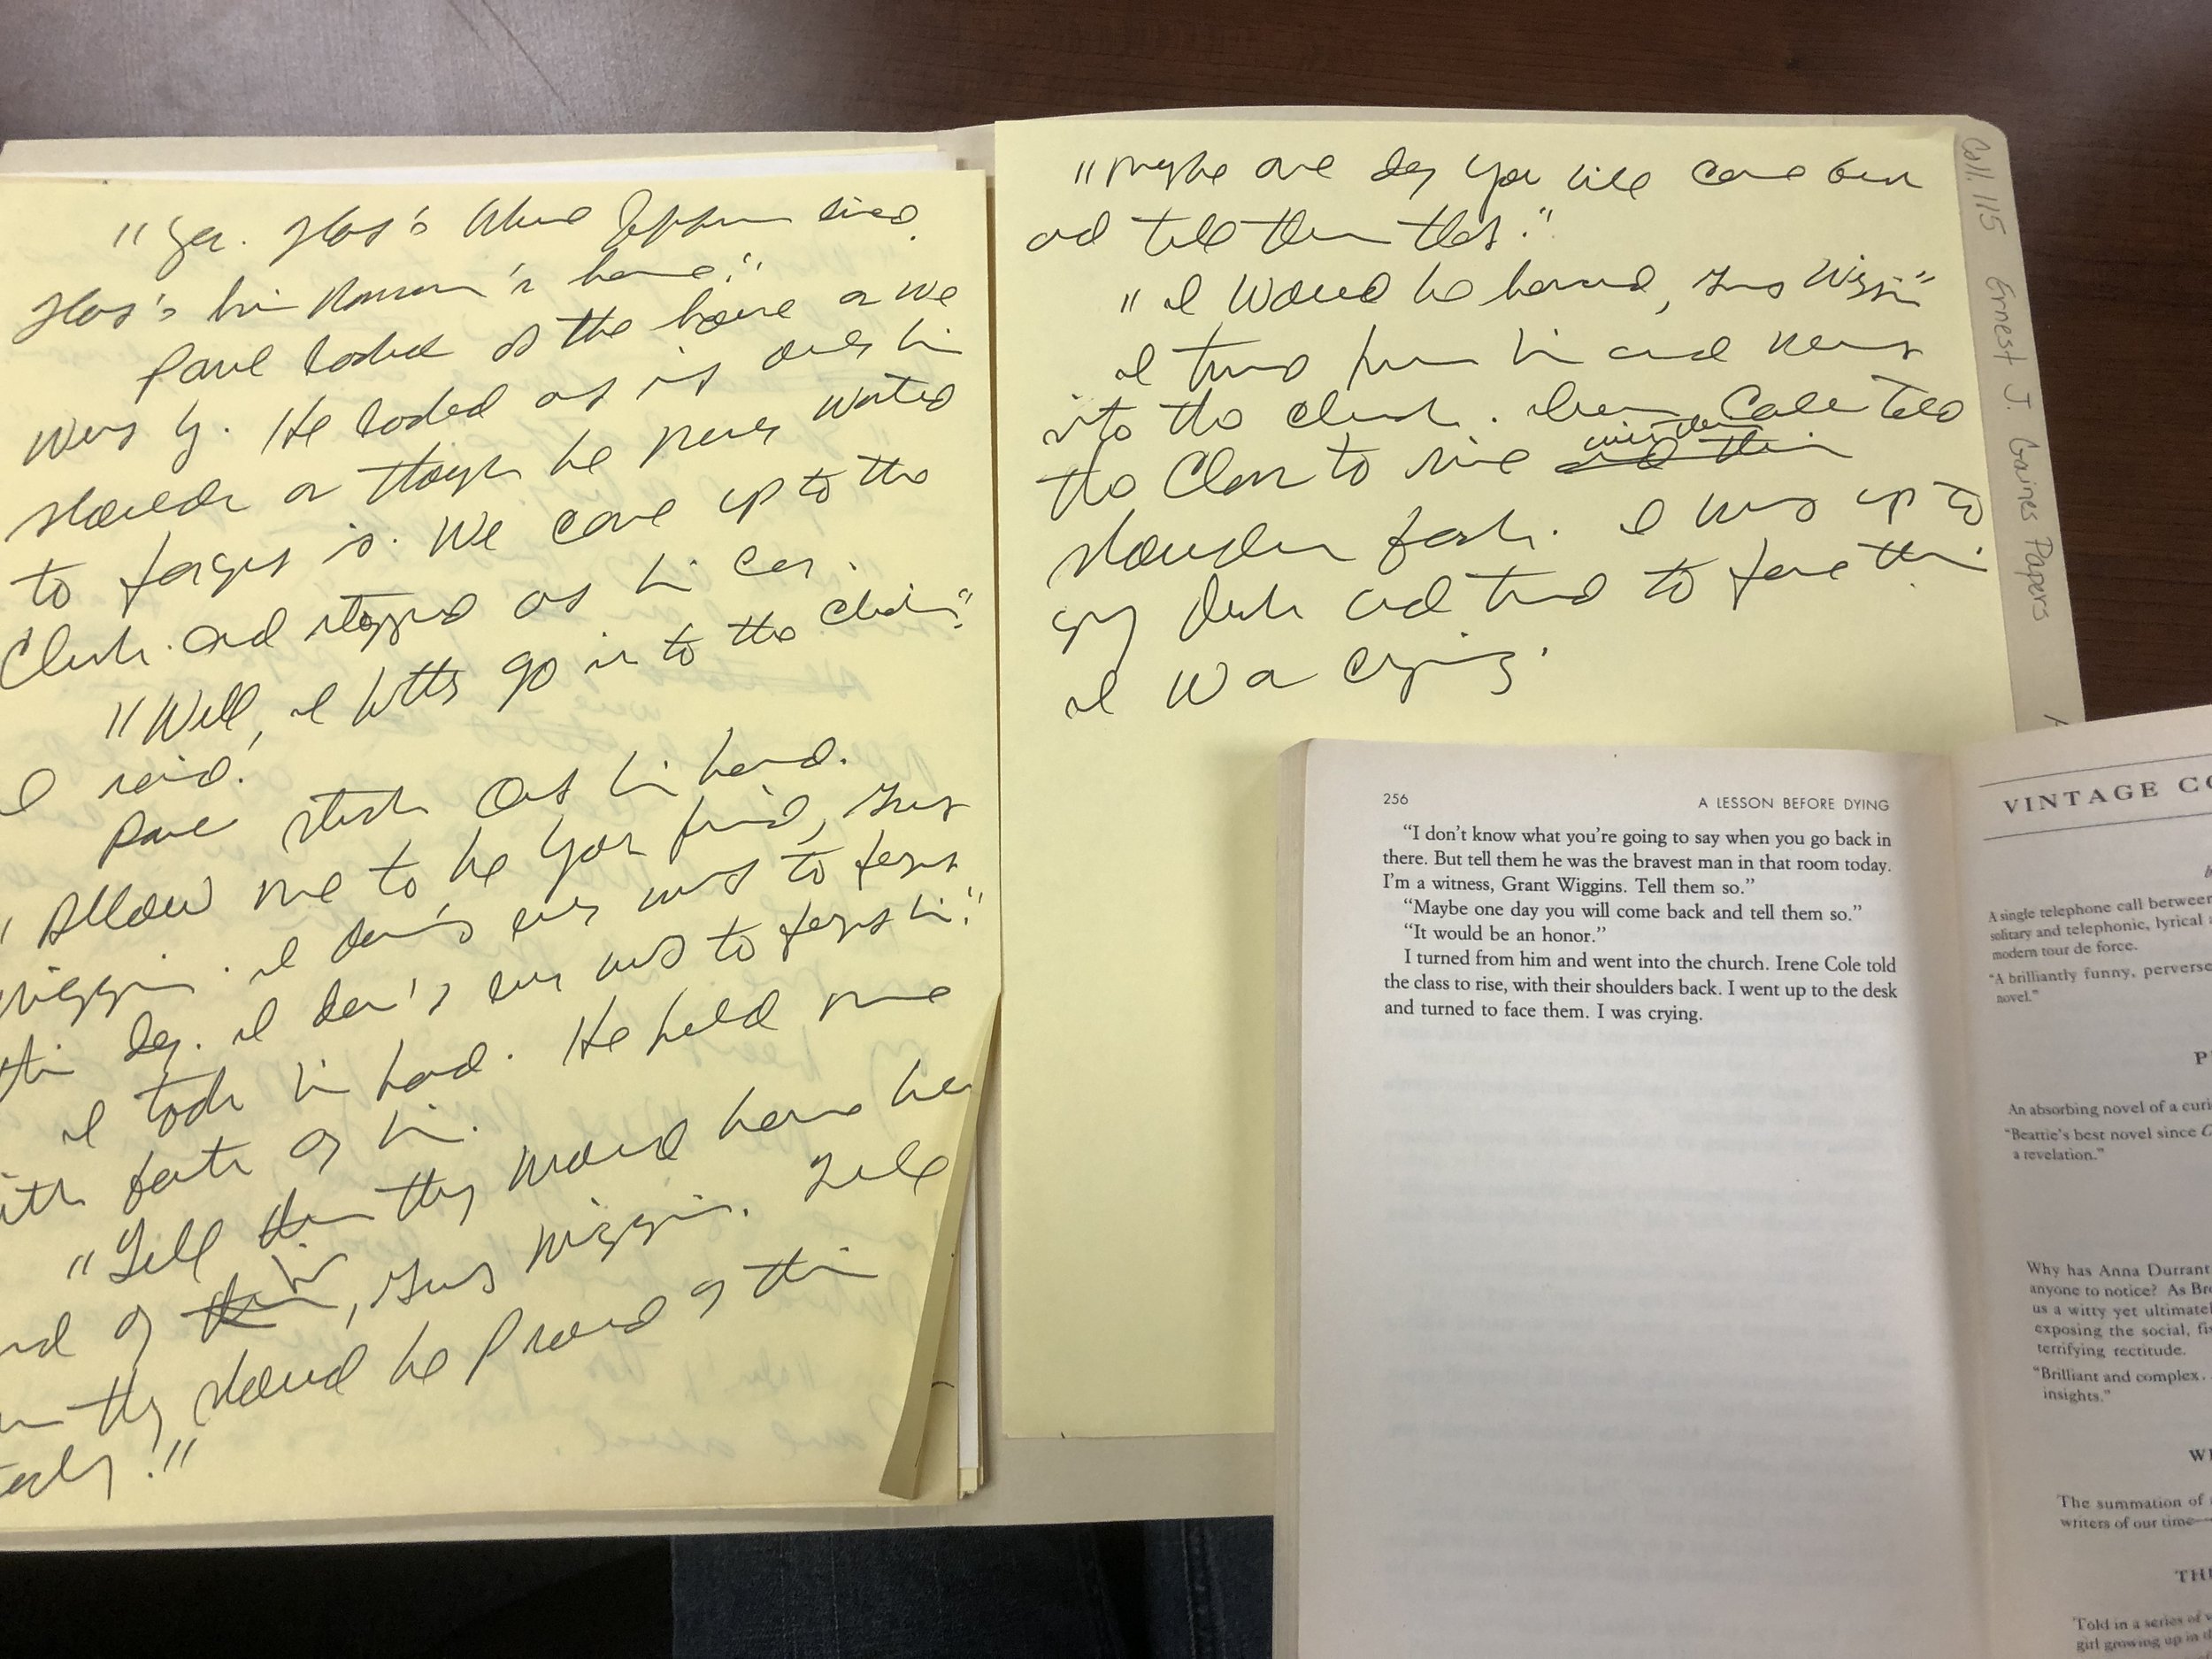 "Yes. That's where Jefferson lived.
That's his Nannan's home."
Paul looked at the house as we
went by. He looked at it over his
shoulder as though he never wanted
to forget it. We came up to the
church and stopped at his car.
"Well, I better go in to the children."
I said.
Paul stuck out his hand.
"Allow me to be your friend, Grant
Wiggins. I don't ever want to forget
this day. I don't ever want to forget him."
I took his hand. He held mine
with both of his.
"Tell them they should have been
of him, Grant Wiggins. Tell
they should be proud of him
"Maybe one day you will come back
and tell them that."
"I would be honored, Grant Wiggins"
I turned from him and went
into the church. Irene Cole told
the class to rise with their
shoulders back. I went up to
my desk and turned to face them.
I was crying.
Coll. 115 Ernest J. Gaines Papers
256 A LESSON BEFORE DYING
"I don't know what you're going to say when you go back in
there. But tell them he was the bravest man in that room today.
I'm a witness, Grant Wiggins. Tell them so."
"Maybe one day you will come back and tell them so."
"It would be an honor."
I turned from him and went into the church. Irene Cole told
the class to rise, with their shoulders back. I went up to the desk
and turned to face them. I was crying.
VINTAGE CO
A single telephone call between
solitary and telephonic, lyrical
modern tour de force.
"A brilliantly funny, perverse
novel."
P
An absorbing novel of a curi
"Beattie's best novel since C
a revelation."
Why has Anna Durrant
anyone to notice? As Bro
us a witty yet ultimatel
exposing the social, fi
terrifying rectitude.
"Brilliant and complex.
insights."
W
The summation of
writers of our time—
TH
Told in a series of v
girl growing up in